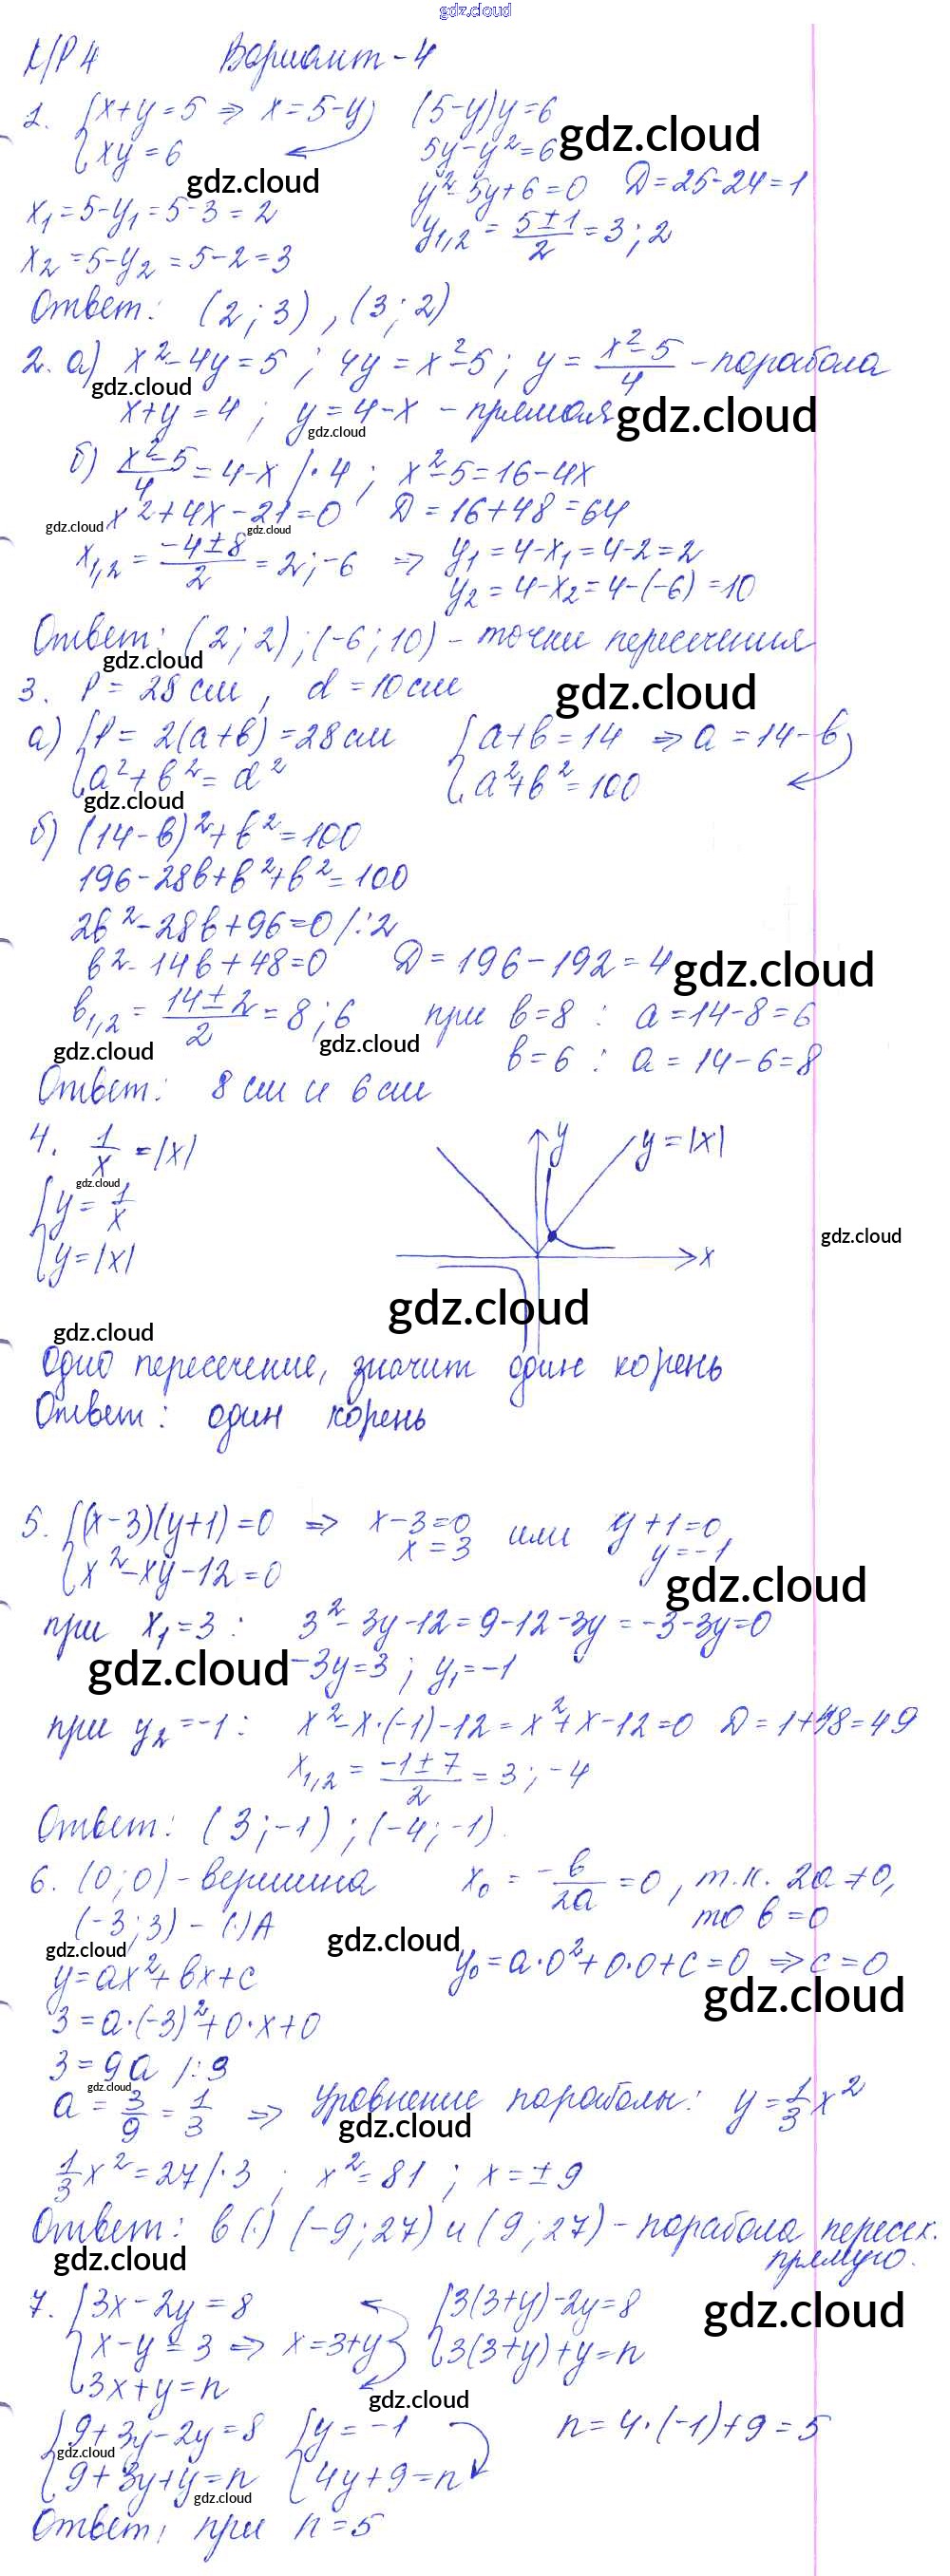 gdz.cloud
К/Р 4 Вариант-4
1. {x+y=5 ⇒ x=5-y) (5-y)y=6
{xy=6 5y-y²=6 gdz.cloud
gdz.cloud y²-5y+6=0 D=25-24=1
x₁=5-y₁=5-3=2 y₁,₂ = (5±1)/2 = 3; 2
x₂=5-y₂=5-2=3
Ответ: (2; 3), (3; 2)
2. а) x²-4y=5; 4y=x²-5; y=(x²-5)/4 - парабола
gdz.cloud
x+y=4; y=4-x - прямая gdz.cloud
gdz.cloud
б) (x²-5)/4 = 4-x |·4; x²-5=16-4x
gdz.cloud x²+4x-21=0 D=16+48=64
gdz.cloud
x₁,₂ = (-4±8)/2 = 2; -6 ⇒ y₁=4-x₁=4-2=2
y₂=4-x₂=4-(-6)=10
Ответ: (2; 2); (-6; 10) - точки пересечения
gdz.cloud
3. P=28 см, d=10 см gdz.cloud
а) {P=2(a+b)=28 см {a+b=14 ⇒ a=14-b)
{a²+b²=d² {a²+b²=100
gdz.cloud
б) (14-b)²+b²=100
196-28b+b²+b²=100
2b²-28b+96=0 |:2
b²-14b+48=0 D=196-192=4 gdz.cloud
b₁,₂ = (14±2)/2 = 8; 6 при b=8: a=14-8=6
gdz.cloud gdz.cloud b=6: a=14-6=8
Ответ: 8 см и 6 см
4. 1/x = |x| y y=|x|
gdz.cloud
{y=1/x
{y=|x| x gdz.cloud
gdz.cloud
gdz.cloud
Одно пересечение, значит один корень
Ответ: один корень
5. {(x-3)(y+1)=0 ⇒ x-3=0 или y+1=0
x=3 y=-1
{x²-xy-12=0
gdz.cloud
при x₁=3: 3²-3y-12=9-12-3y=-3-3y=0
gdz.cloud -3y=3; y₁=-1
при y₂=-1: x²-x·(-1)-12=x²+x-12=0 D=1+48=49
x₁,₂ = (-1±7)/2 = 3; -4
Ответ: (3; -1); (-4; -1).
6. (0; 0) - вершина x₀ = -b/2a = 0, т.к. 2a≠0,
то b=0
(-3; 3) - (·)A gdz.cloud
gdz.cloud
y=ax²+bx+c y₀=a·0²+0·0+c=0 ⇒ c=0
gdz.cloud
3=a·(-3)²+0·x+0
3=9a |:9
gdz.cloud
a = 3/9 = 1/3 ⇒ Уравнение параболы: y=1/3x²
gdz.cloud
1/3x²=27 |·3; x²=81; x=±9
Ответ: в (·) (-9; 27) и (9; 27) - парабола пересек.
прямую.
gdz.cloud
7. {3x-2y=8 {3(3+y)-2y=8 gdz.cloud
{x-y=3 ⇒ x=3+y {3(3+y)+y=n
{3x+y=n
gdz.cloud
{9+3y-2y=8 {y=-1 n=4·(-1)+9=5
gdz.cloud
{9+3y+y=n {4y+9=n
gdz.cloud
Ответ: при n=5